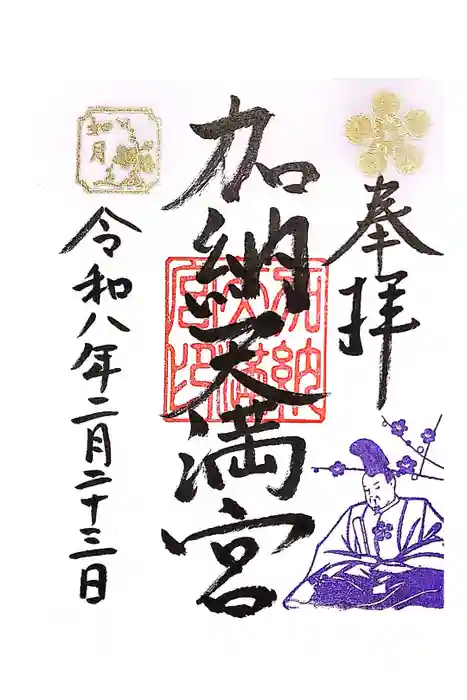 奉拝
加納天満宮
加納天満宮印
如月
令和八年二月二十三日